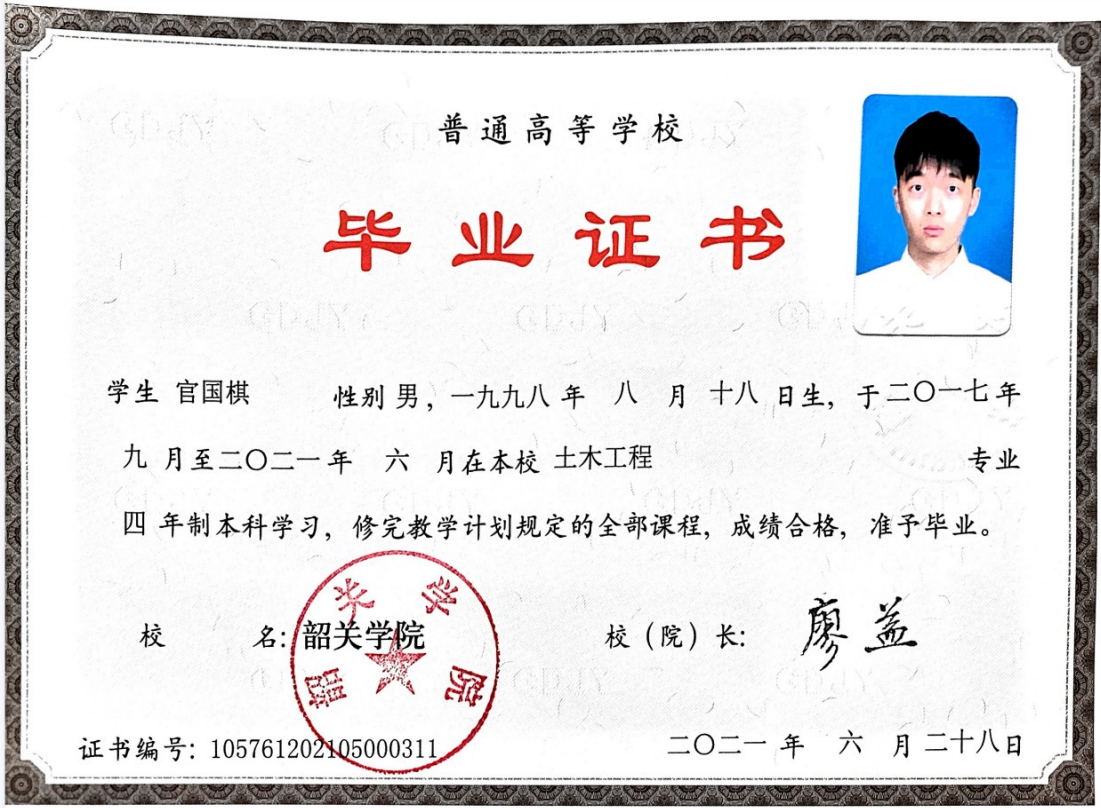 普通高等学校
毕业证书
学生 官国棋 性别 男，一九九八 年 八 月 十八 日生，于二〇一七年
九 月至二〇二一年 六 月在本校 土木工程 专业
四 年制本科学习，修完教学计划规定的全部课程，成绩合格，准予毕业。
校 名：韶关学院 校（院）长： 廖益
韶关学院
证书编号：105761202105000311 二〇二一 年 六 月 二十八日